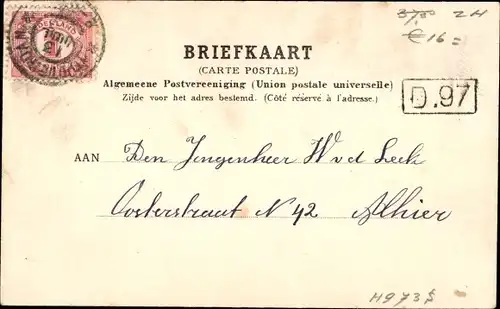 37,50 2H
€16=
NEDERLAND
BRIEFKAART
(CARTE POSTALE)
Algemeene Postvereeniging (Union postale universelle)
Zijde voor het adres bestemd. (Côté réservé à l'adresse.)
D.97
AAN Den Jongenheer W v d Leck
Oosterstraat N 42 Alhier